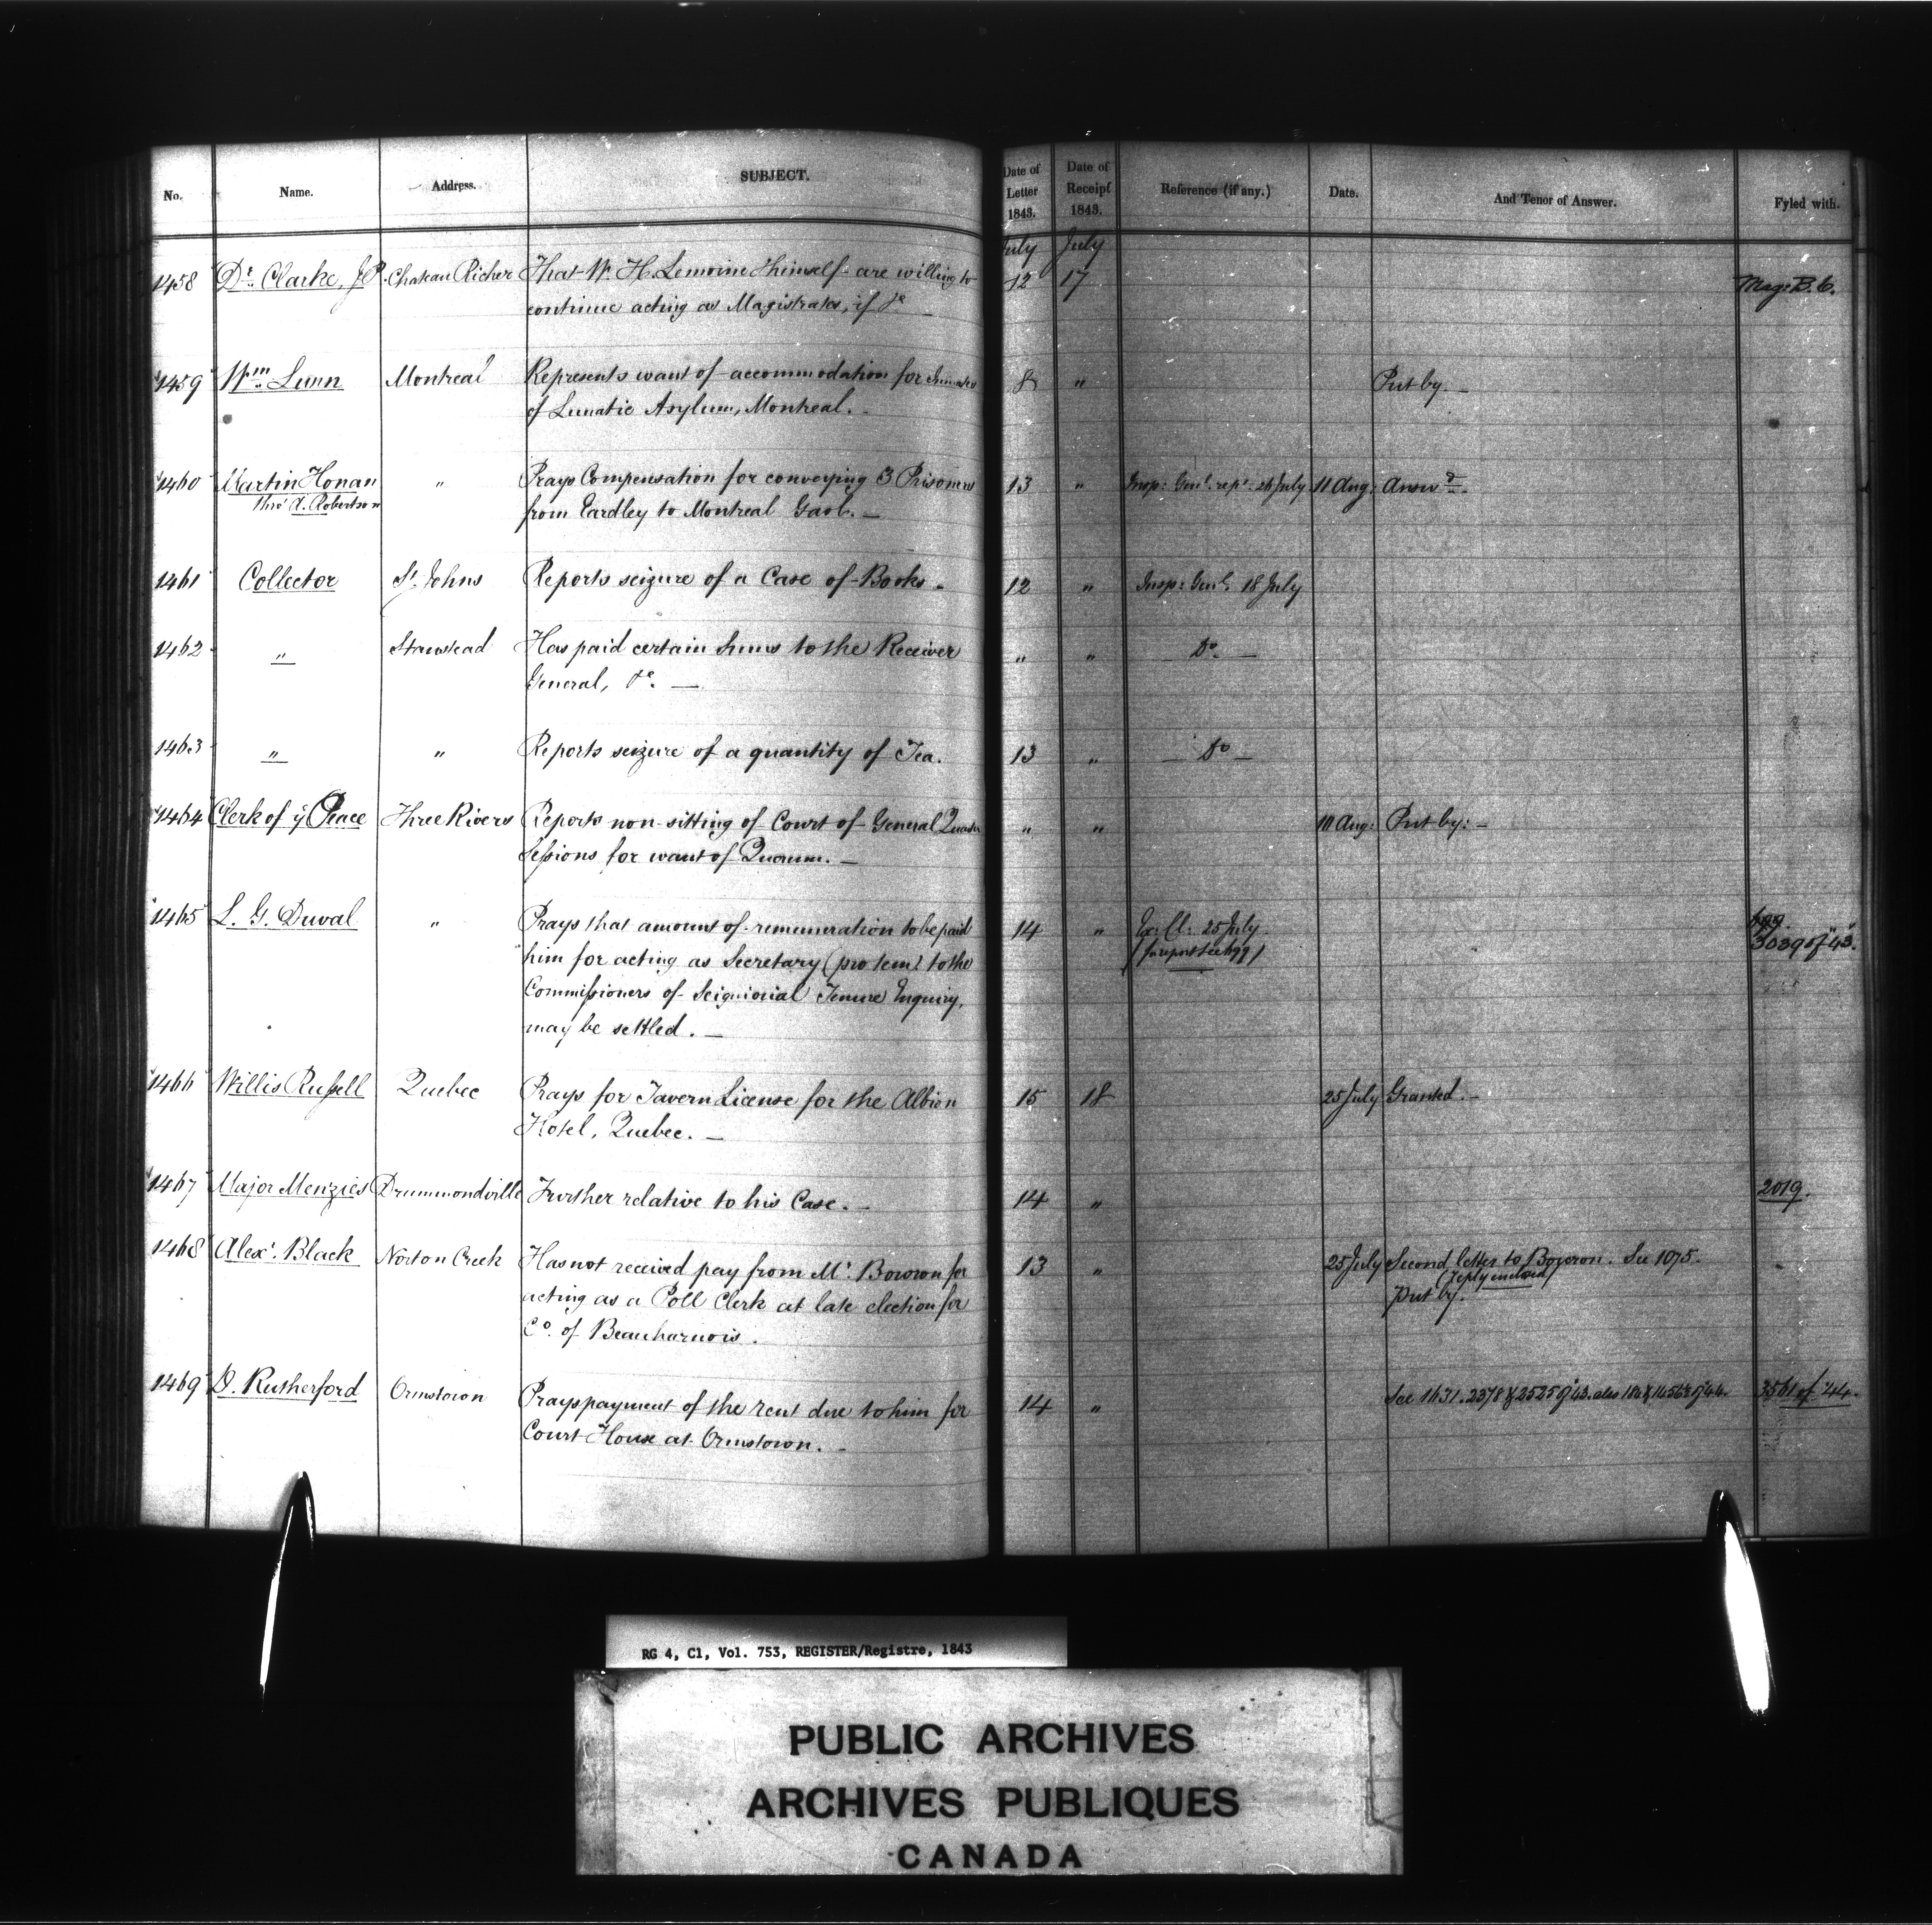 No. Name. Address. SUBJECT. Date of Letter 1843. Date of Receipt 1843. Reference (if any.) Date. And Tenor of Answer. Fyled with.
July July
1458 Dr. Clarke, J.P. Chateau Richer That W. H. Lemoine & himself are willing to 12 17 Mag: B. C.
continue acting as Magistrates, if &c
1459 Wm. Lunn Montreal Represents want of accommodation for Inmates 8 " Put by. —
of Lunatic Asylum, Montreal. —
1460 Martin Honan " Prays Compensation for conveying 3 Prisoners 13 " Insp: Genl. rept. 26 July 11 Aug: Answd. —
thro' A. Robertson from Eardley to Montreal Gaol. —
1461 Collector St. Johns Reports seizure of a Case of Books. 12 " Insp: Genl. 18 July
1462 " Stanstead Has paid certain sums to the Receiver " " — Do. —
General, &c. —
1463 " " Reports seizure of a quantity of Tea. 13 " — Do —
1464 Clerk of ye Peace Three Rivers Reports non-sitting of Court of General Quarter " " 10 Aug: Put by: —
Sessions for want of Quorum. —
1465 L. G. Duval " Prays that amount of remuneration to be paid 14 " Ex: Cl: 25 July
him for acting as Secretary (pro tem) to the (for report see 499) 3039 of "43".
Commissioners of Seigniorial Tenure Enquiry,
may be settled. —
1466 Willis Russell Quebec Prays for Tavern License for the Albion 15 18 25 July Granted. —
Hotel, Quebec. —
1467 Major Menzies Drummondville Further relative to his Case. — 14 " 2019.
1468 Alexr. Black Norton Creek Has not received pay from Mr. Bowron for 13 " 25 July Second letter to Bowron. See 1075.
(reply enclosed)
acting as a Poll Clerk at late election for Put by.
Co. of Beauharnois.
1469 D. Rutherford Ormstown Prays payment of the rent due to him for 14 " See 1631. 2378 & 2525 of 43. also 3561 of "44.
Court House at Ormstown. —
RG 4, C1, Vol. 753, REGISTER/Registre, 1843
PUBLIC ARCHIVES
ARCHIVES PUBLIQUES
CANADA